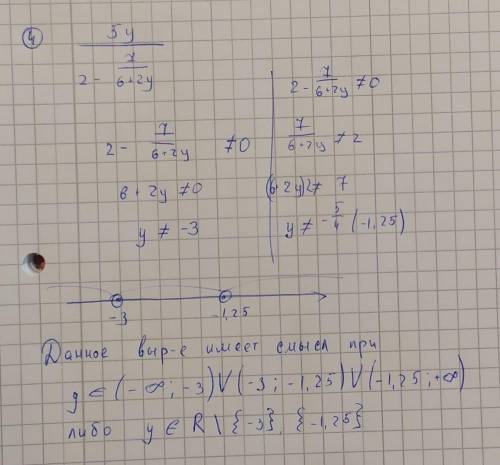 4
5y / (2 - 7/(6+2y))
2 - 7/(6+2y) ≠ 0
6 + 2y ≠ 0
y ≠ -3
2 - 7/(6+2y) ≠ 0
7/(6+2y) ≠ 2
(6+2y)2 ≠ 7
y ≠ -5/4 (-1,25)
-3 -1,25
Данное выр-е имеет смысл при
y ∈ (-∞; -3) V (-3; -1,25) V (-1,25; +∞)
либо y ∈ R \ {-3}, {-1,25}